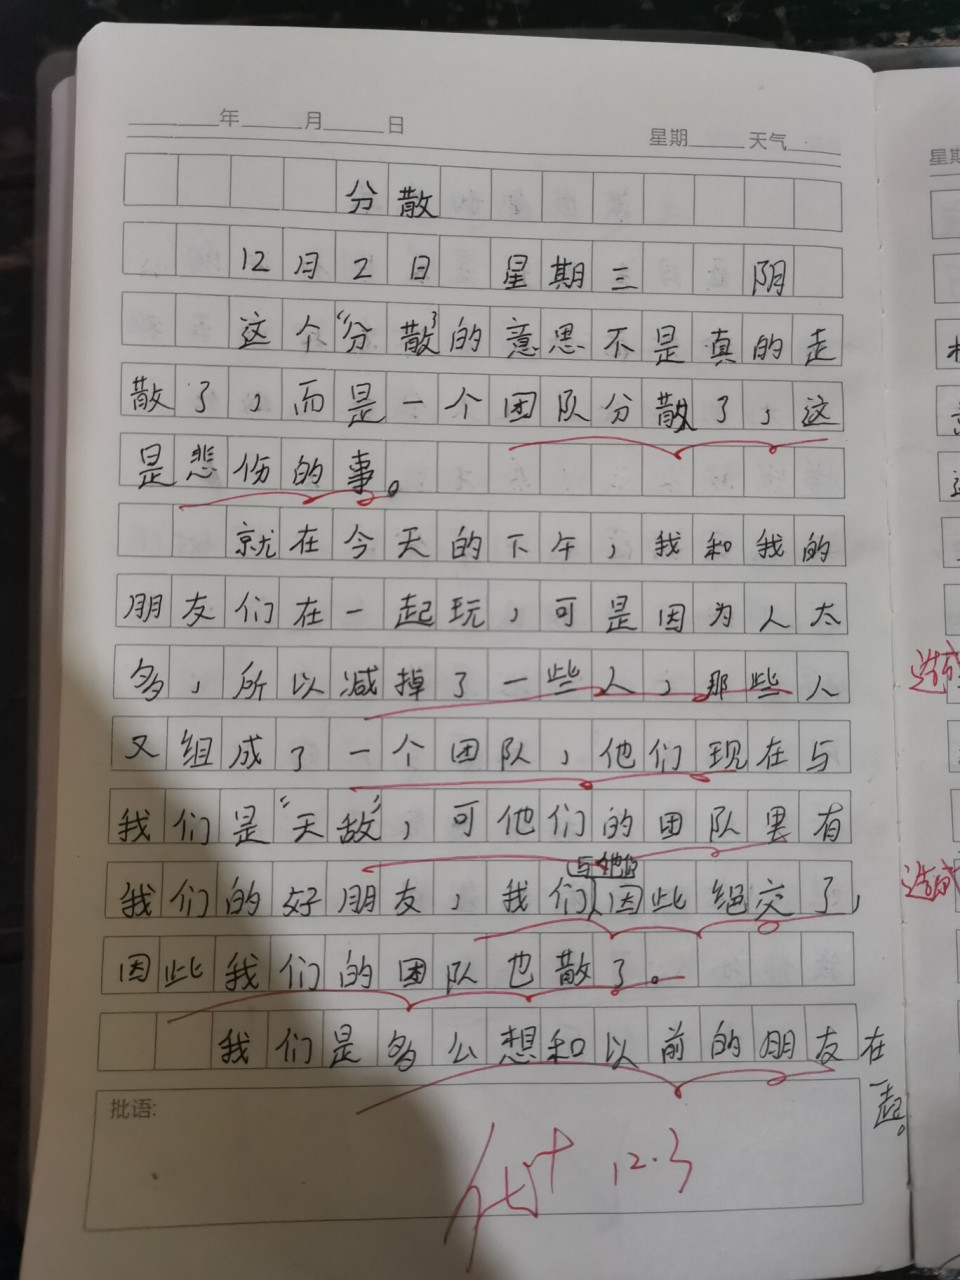 年 月 日 星期 天气
分散
12月2日 星期三 阴
这个“分散”的意思不是真的走
散了，而是一个团队分散了，这
是悲伤的事。
就在今天的下午，我和我的
朋友们在一起玩，可是因为人太
多，所以减掉了一些人，那些人
又组成了一个团队，他们现在与
我们是“天敌”，可他们的团队里有
与他们
我们的好朋友，我们因此绝交了，
因此我们的团队也散了。
我们是多么想和以前的朋友在
一起。
批语:
优+ 12.3
星期